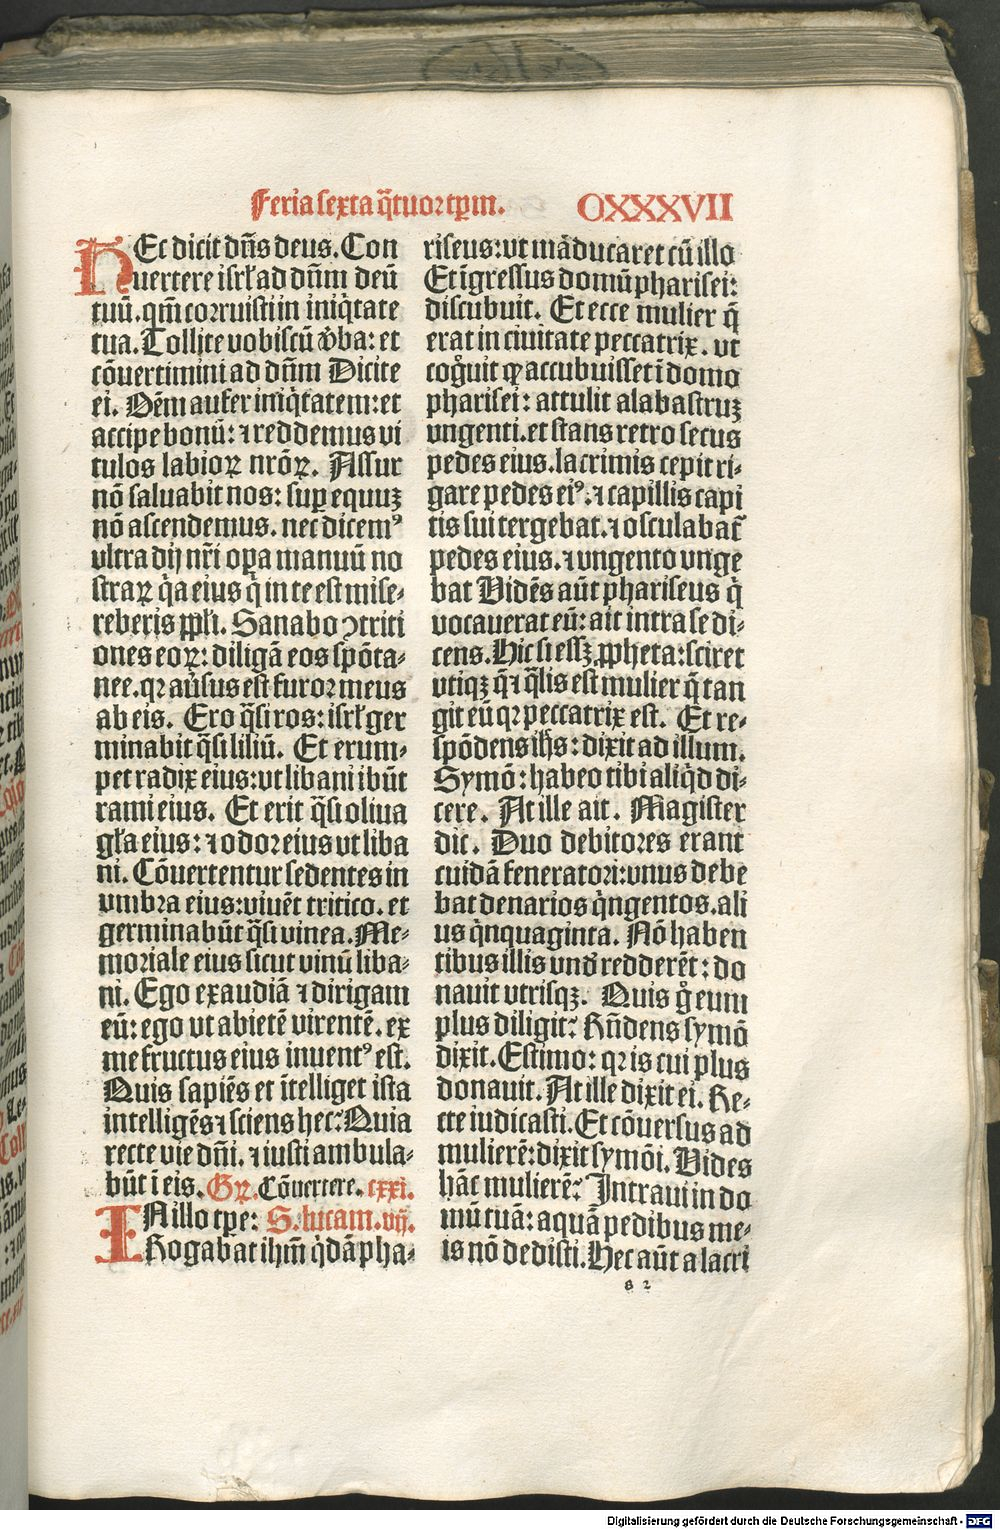 Feria sexta q̃tuor tp̄m. OXXXVII
HEc dicit dn̄s deus. Con
uertere isrl̕ ad dn̄m deū
tuū. qm̄ corruisti in iniq̇tate
tua. Tollite vobiscū v̕ba: et
cōuertimini ad dn̄m Dicite
ei. Oēm aufer iniq̇tatem: et
accipe bonū: ⁊ reddemus vi
tulos labioꝝ nrōꝝ. Assur
nō saluabit nos: suꝑ equuꝫ
nō ascendemus. nec dicemꝰ
vltra dij nr̄i oꝑa manuū no
straꝝ q̇a eius q̇ in te est mise-
reberis ppl̕i. Sanabo ꝯtriti
ones eoꝝ: diligā eos spōta-
nee. qꝛ au̕sus est furor meus
ab eis. Ero q̃si ros: isrl̕ ger
minabit q̃si liliū. Et erum-
pet radix eius: vt libani ibūt
rami eius. Et erit q̃si oliua
gl̕a eius: ⁊ odor eius vt liba
ni. Cōuertentur sedentes in
vmbra eius: viuēt tritico. et
germinabūt q̃si vinea. Me-
moriale eius sicut vinū liba-
ni. Ego exaudiā ⁊ dirigam
eū: ego vt abietē virentē. ex
me fructus eius inuentꝰ est.
Quis sapiēs et ītelliget ista
intelligēs ⁊ sciens hec: Quia
recte vie dn̄i. ⁊ iusti ambula-
būt ī eis. Gꝝ. Cōuertere. cxxi.
IN illo tꝑe: S. lucam. vij.
Rogabat ihm̄ q̇dā pha-
riseus: vt māducaret cū illo
Et īgressus domū pharisei:
discubuit. Et ecce mulier q̃
erat in ciuitate peccatrix. vt
cog̊uit ꝙ accubuisset ī domo
pharisei: attulit alabastruꝫ
vngenti. et stans retro secus
pedes eius. lacrimis cepit ri-
gare pedes eiꝰ. ⁊ capillis capi
tis sui tergebat. ⁊ osculabat̃
pedes eius. ⁊ vngento vnge
bat Vidēs aūt phariseus q̇
vocauerat eū: ait intra se di-
cens. Hic si essꝫ ꝓpheta: sciret
vtiqꝫ q̃ ⁊ q̃lis est mulier q̃ tan
git eū qꝛ peccatrix est. Et re-
spōdens ihs̄: dixit ad illum.
Symō: habeo tibi aliq̇d di-
cere. At ille ait. Magister
dic. Duo debitores erant
cuidā feneratori: vnus debe
bat denarios q̇ngentos. ali
us q̇nquaginta. Nō haben
tibus illis vnd̕ redderēt: do
nauit vtrisqꝫ. Quis g̊ eum
plus diligit: Rn̄dens symō
dixit. Estimo: qꝛ is cui plus
donauit. At ille dixit ei. Re-
cte iudicasti. Et cōuersus ad
mulierē: dixit symōi. Vides
hāc mulierē: Intraui in do
mū tuā: aquā pedibus me-
is nō dedisti. Hec aūt a lacri
s 2
Digitalisierung gefördert durch die Deutsche Forschungsgemeinschaft - DFG